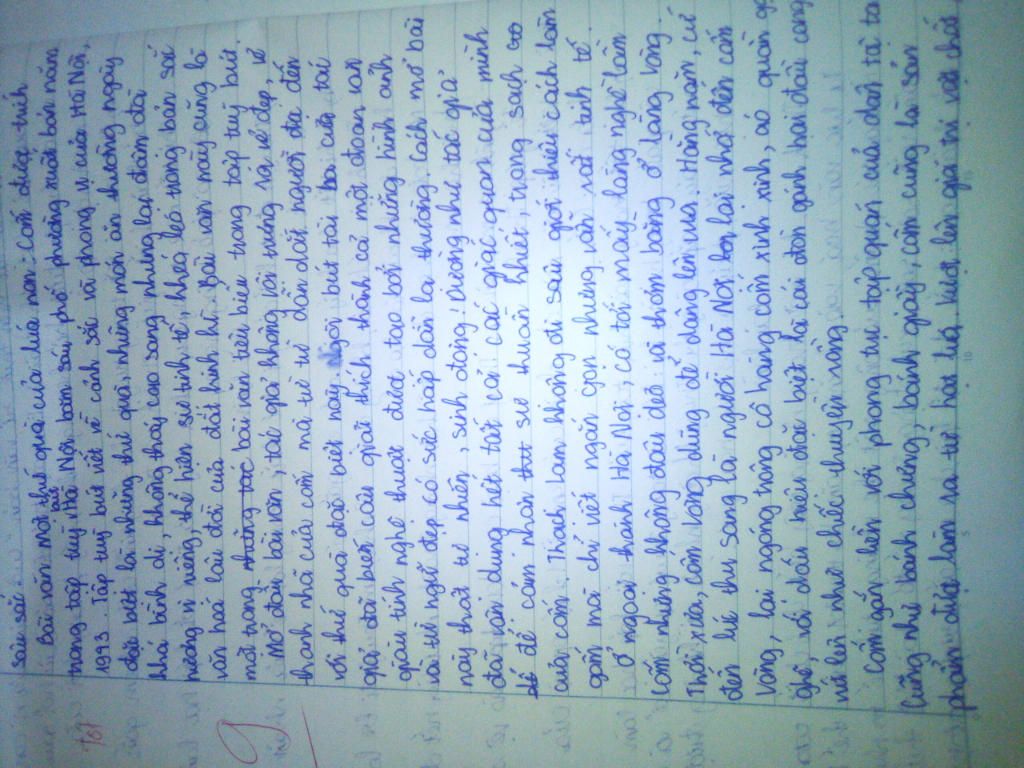 sâu sắc
Bài văn một thứ quà của lúa non: Cốm được trích
trong tập tuỳ bút Hà Nội băm sáu phố phường xuất bản năm
1943. Tập tuỳ bút viết về cảnh sắc và phong vị của Hà Nội,
đặc biệt là những thứ quà, những món ăn thường ngày
khá bình dị, không thấy cao sang nhưng lại đậm đà
hương vị riêng, thể hiện sự tinh tế, khéo léo trong bản sắc
văn hoá lâu đời của đất kinh kì. Bài văn này cũng là
một trong bài văn tiêu biểu trong tập tuỳ bút.
Mở đầu bài văn, tác giả không vội tướng ra vẻ đẹp, vẻ
thanh nhã của cốm mà từ từ dẫn dắt người đọc đến
với thứ quà đặc biệt này. Ngòi bút tài ba của tác
giả đã biến câu giải thích thành cả một đoạn văn
giàu tính nghệ thuật được tạo bởi những hình ảnh
và từ ngữ đẹp có sức hấp dẫn lạ thường. Cách mở bài
này thật tự nhiên, sinh động! Dường như tác giả
đã vận dụng hết tất cả các giác quan của mình
để cảm nhận sự thuần khiết, trong sạch
của cốm. Thạch Lam không đi sâu giới thiệu cách làm
cốm mà chỉ viết ngắn gọn nhưng vẫn rất tinh tế.
Ở ngoại thành Hà Nội, có tới mấy làng nghề làm
cốm nhưng không đâu dẻo và thơm bằng ở làng Vòng.
Thời xưa, cốm Vòng dùng để dâng lên vua. Hằng năm, cứ
đến lúc thu sang là người Hà Nội lại nhớ đến cốm
Vòng, lại ngóng trông cô hàng cốm xinh xinh, áo quần gọn
ghẽ, với dấu hiệu đặc biệt là cái đòn gánh hai đầu cong
vút lên như chiếc thuyền rồng.
Cốm gắn liền với phong tục tập quán của dân tộc ta
Cũng như bánh chưng, bánh giầy, cốm cũng là sản
phẩm được làm ra từ hạt lúa, kiệt lên giá trị vật chất
Tốt
9